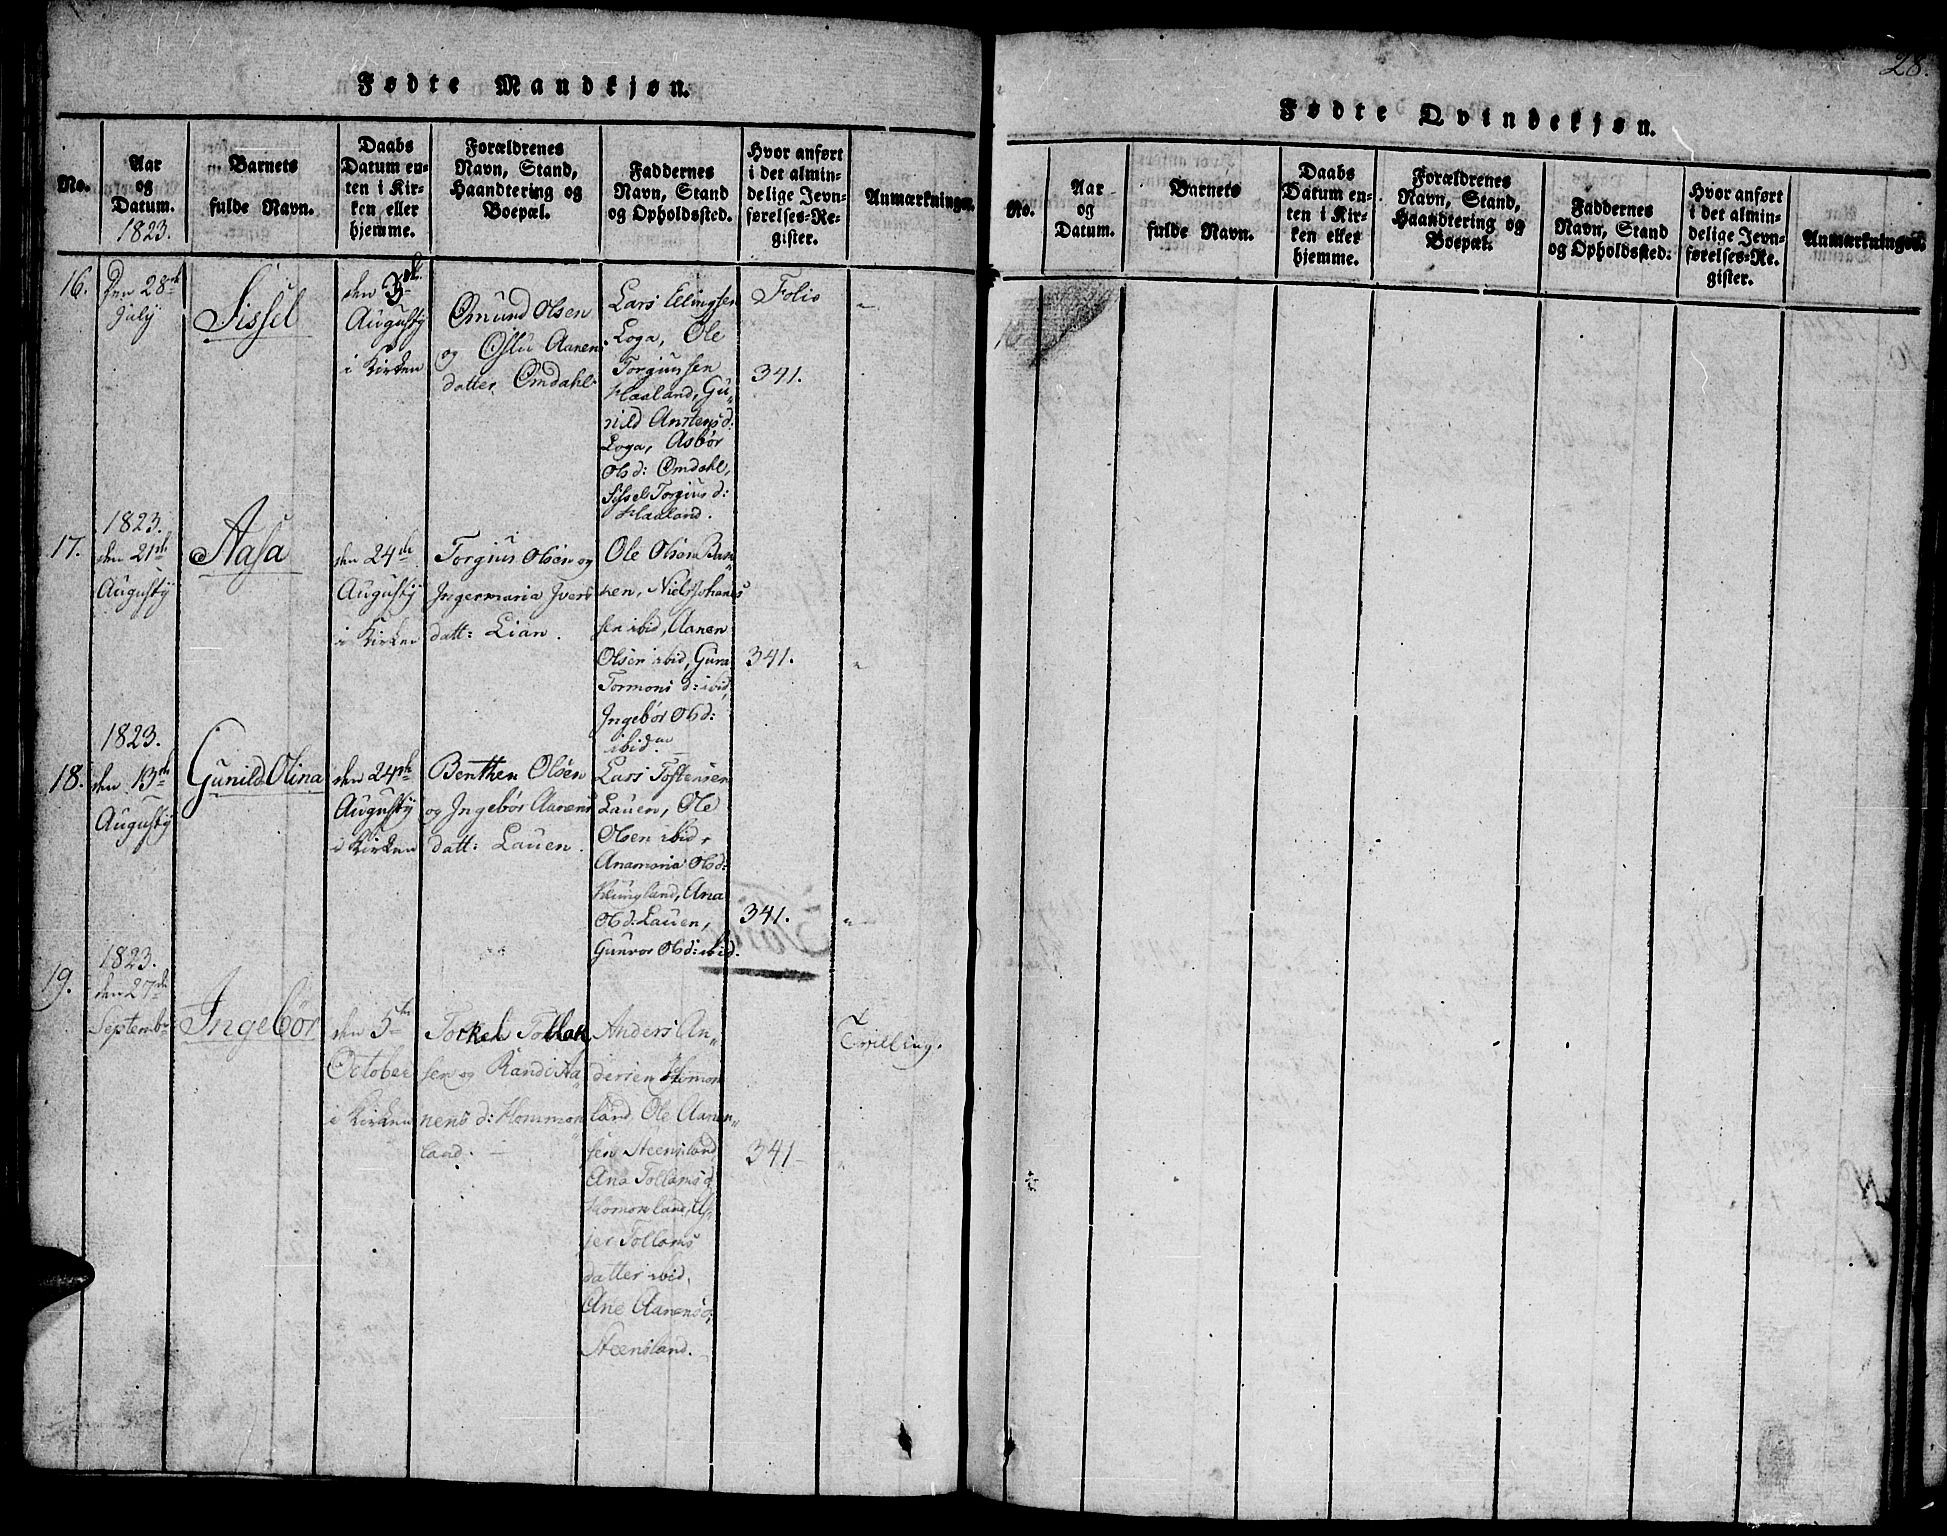 28.
Fødte Mandkjøn.
No.
Aar
og
Datum.
1823.
Barnets
fulde Navn.
Daabs
Datum en-
ten i Kir-
ken eller
hjemme.
Forældrenes
Navn, Stand,
Haandtering og
Boepæl.
Faddernes
Navn, Stand
og Opholdssted.
Hvor anført
i det almin-
delige Jevn-
førelses-Re-
gister.
Anmærkninger.
16.
Den 28de
July
Sissel
den 3de
Augusty
i Kirken
Ømund Olsen
og Oslu Aanens
datter Ømdahl
Lars Ellingsen
Loga, Ole
Torgiussen
Haaland, Gu„
nild Anstensd:
Loga, Asbør
Olsd: Ømdahl,
Sissel Torgiusd:
Haaland.
Folio
341.
„
17.
1823.
den 21de
Augusty
Aasa
den 24de
Augusty
i Kirken
Torgius Olsen og
Ingermaria Ivers
datt: Lian.
Ole Olsen Bac„
ken, Niels Johanes
sen ibid, Aanen
Olsen ibid, Guro
Tormons d: ibid,
Ingebør Olsd:
ibid.
341.
„
18.
1823.
den 13de
Augusty
Gunild Olina
den 24de
Augusty
i Kirken
Benthen Olsen
og Ingebør Aanens
datt: Lauen.
Lars Tostensen
Lauen, Ole
Olsen ibid,
Anamaria Olsd:
Klungland, Ana
Olsd: Lauen,
Gunvor Olsd: ibid.
341.
„
19.
1823.
den 27de
Septembr
Ingebør
den 5te
October
i Kirken
Torkel Tollak
sen og Randi Aa„
nens d: Hommon„
land.
Anders An„
dersen Homon
land, Ole Aanen„
sen Steensland
Ana Tollams d:
Homonland, As„
jer Tollams
datter ibid,
Ane Aanens d:
Steensland.
341
„
Tvilling.
Fødte Qvindekjøn.
No.
Aar
og
Datum.
Barnets
fulde Navn.
Daabs
Datum en-
ten i Kir-
ken eller
hjemme.
Forældrenes
Navn, Stand,
Haandtering og
Boepæl.
Faddernes
Navn, Stand
og Opholdssted.
Hvor anført
i det almin-
delige Jevn-
førelses-Re-
gister.
Anmærkninger.